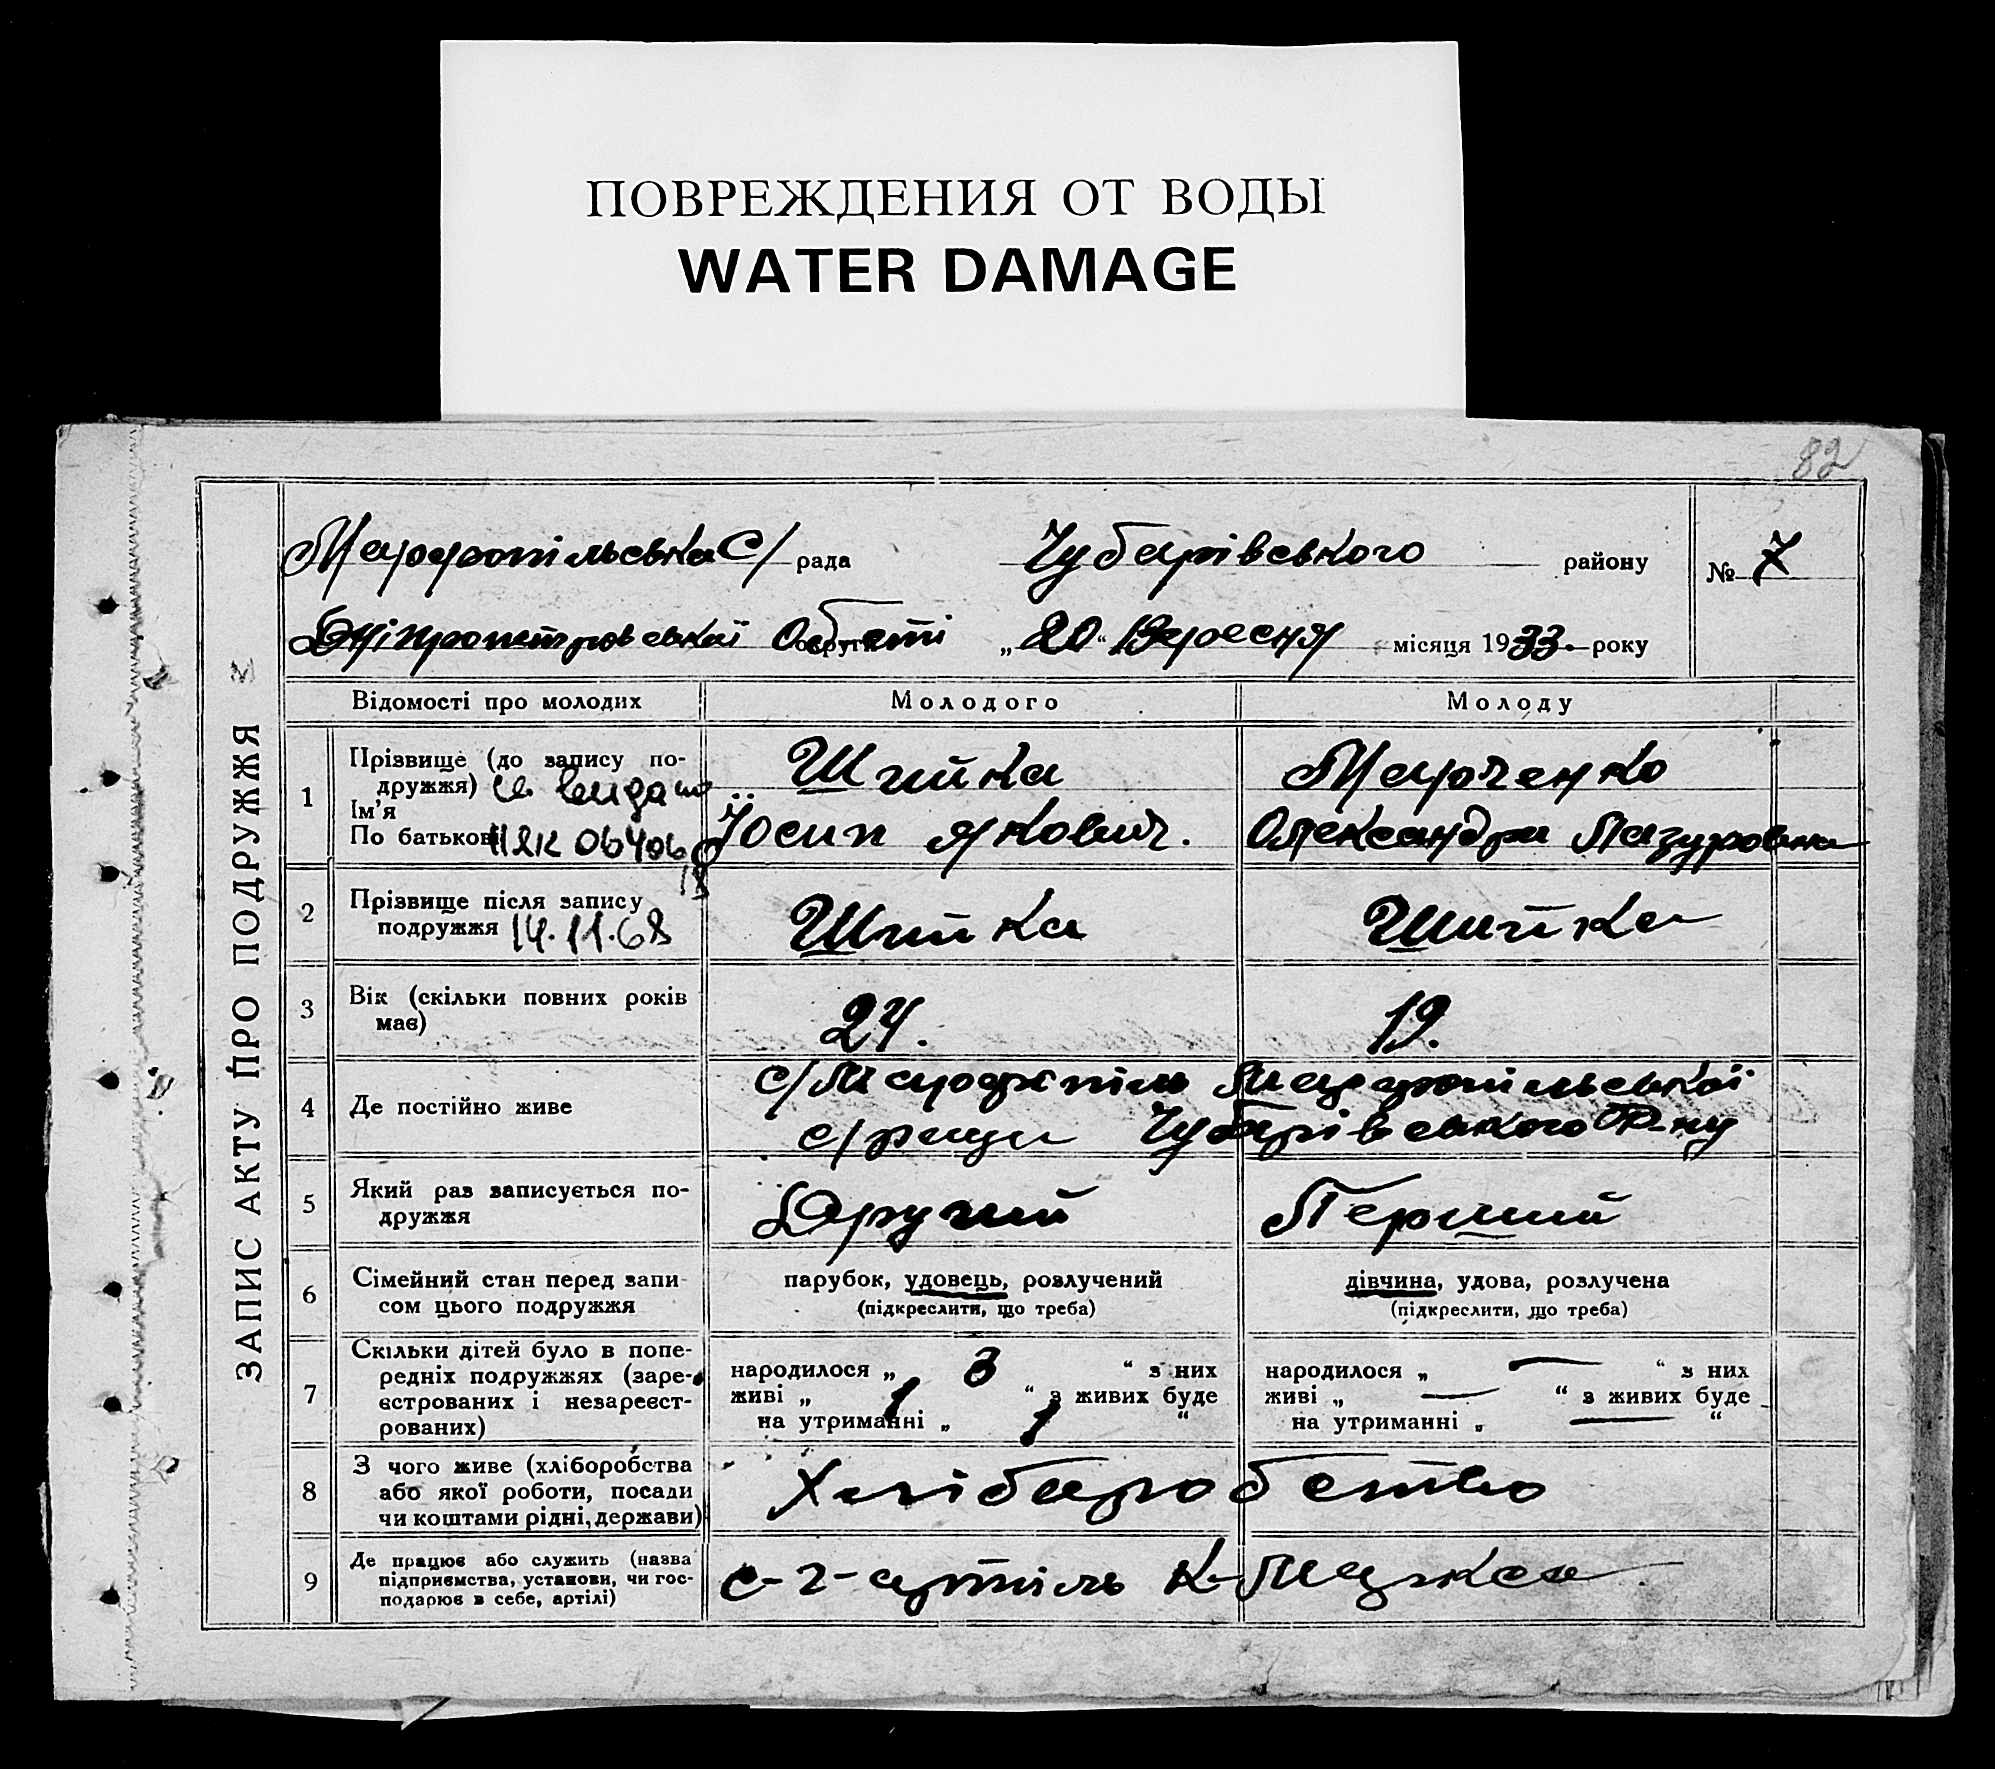 ПОВРЕЖДЕНИЯ ОТ ВОДЫ
WATER DAMAGE
82
ЗАПИС АКТУ ПРО ПОДРУЖЖЯ
Марфопільська С/ рада Чубарівського району № 7
Дніпропетровської Області „20“ Вересня місяця 1933. року
Відомості про молодих Молодого Молоду
1 Прізвище (до запису по-
дружжя) св видано Шийка Марченко
Ім'я
По батькові ІІЯК 06406 Йосип Якович. Олександра Лазуровна
2 Прізвище після запису
подружжя 14.11.68 Шийка Шийка
3 Вік (скільки повних років
має) 24. 19.
4 Де постійно живе с/Марфопіль Марфопільської
с/ради Чубарівського Р-ну
5 Який раз записується по-
дружжя Другий Перший
6 Сімейний стан перед запи-
сом цього подружжя
парубок, удовець, розлучений дівчина, удова, розлучена
(підкреслити, що треба) (підкреслити, що треба)
7 Скільки дітей було в попе-
редніх подружжях (заре-
єстрованих і незареєст-
рованих)
народилося „ 3 “ з них народилося „ — “ з них
живі „ 1 “ з живих буде живі „ — “ з живих буде
на утриманні „ 1 “ на утриманні „ — “
8 З чого живе (хліборобства
або якої роботи, посади
чи коштами рідні, держави) Хліборобство
9 Де працює або служить (назва
підприємства, установи, чи гос-
подарює в себе, артілі) с-г-артіль К-Маркса